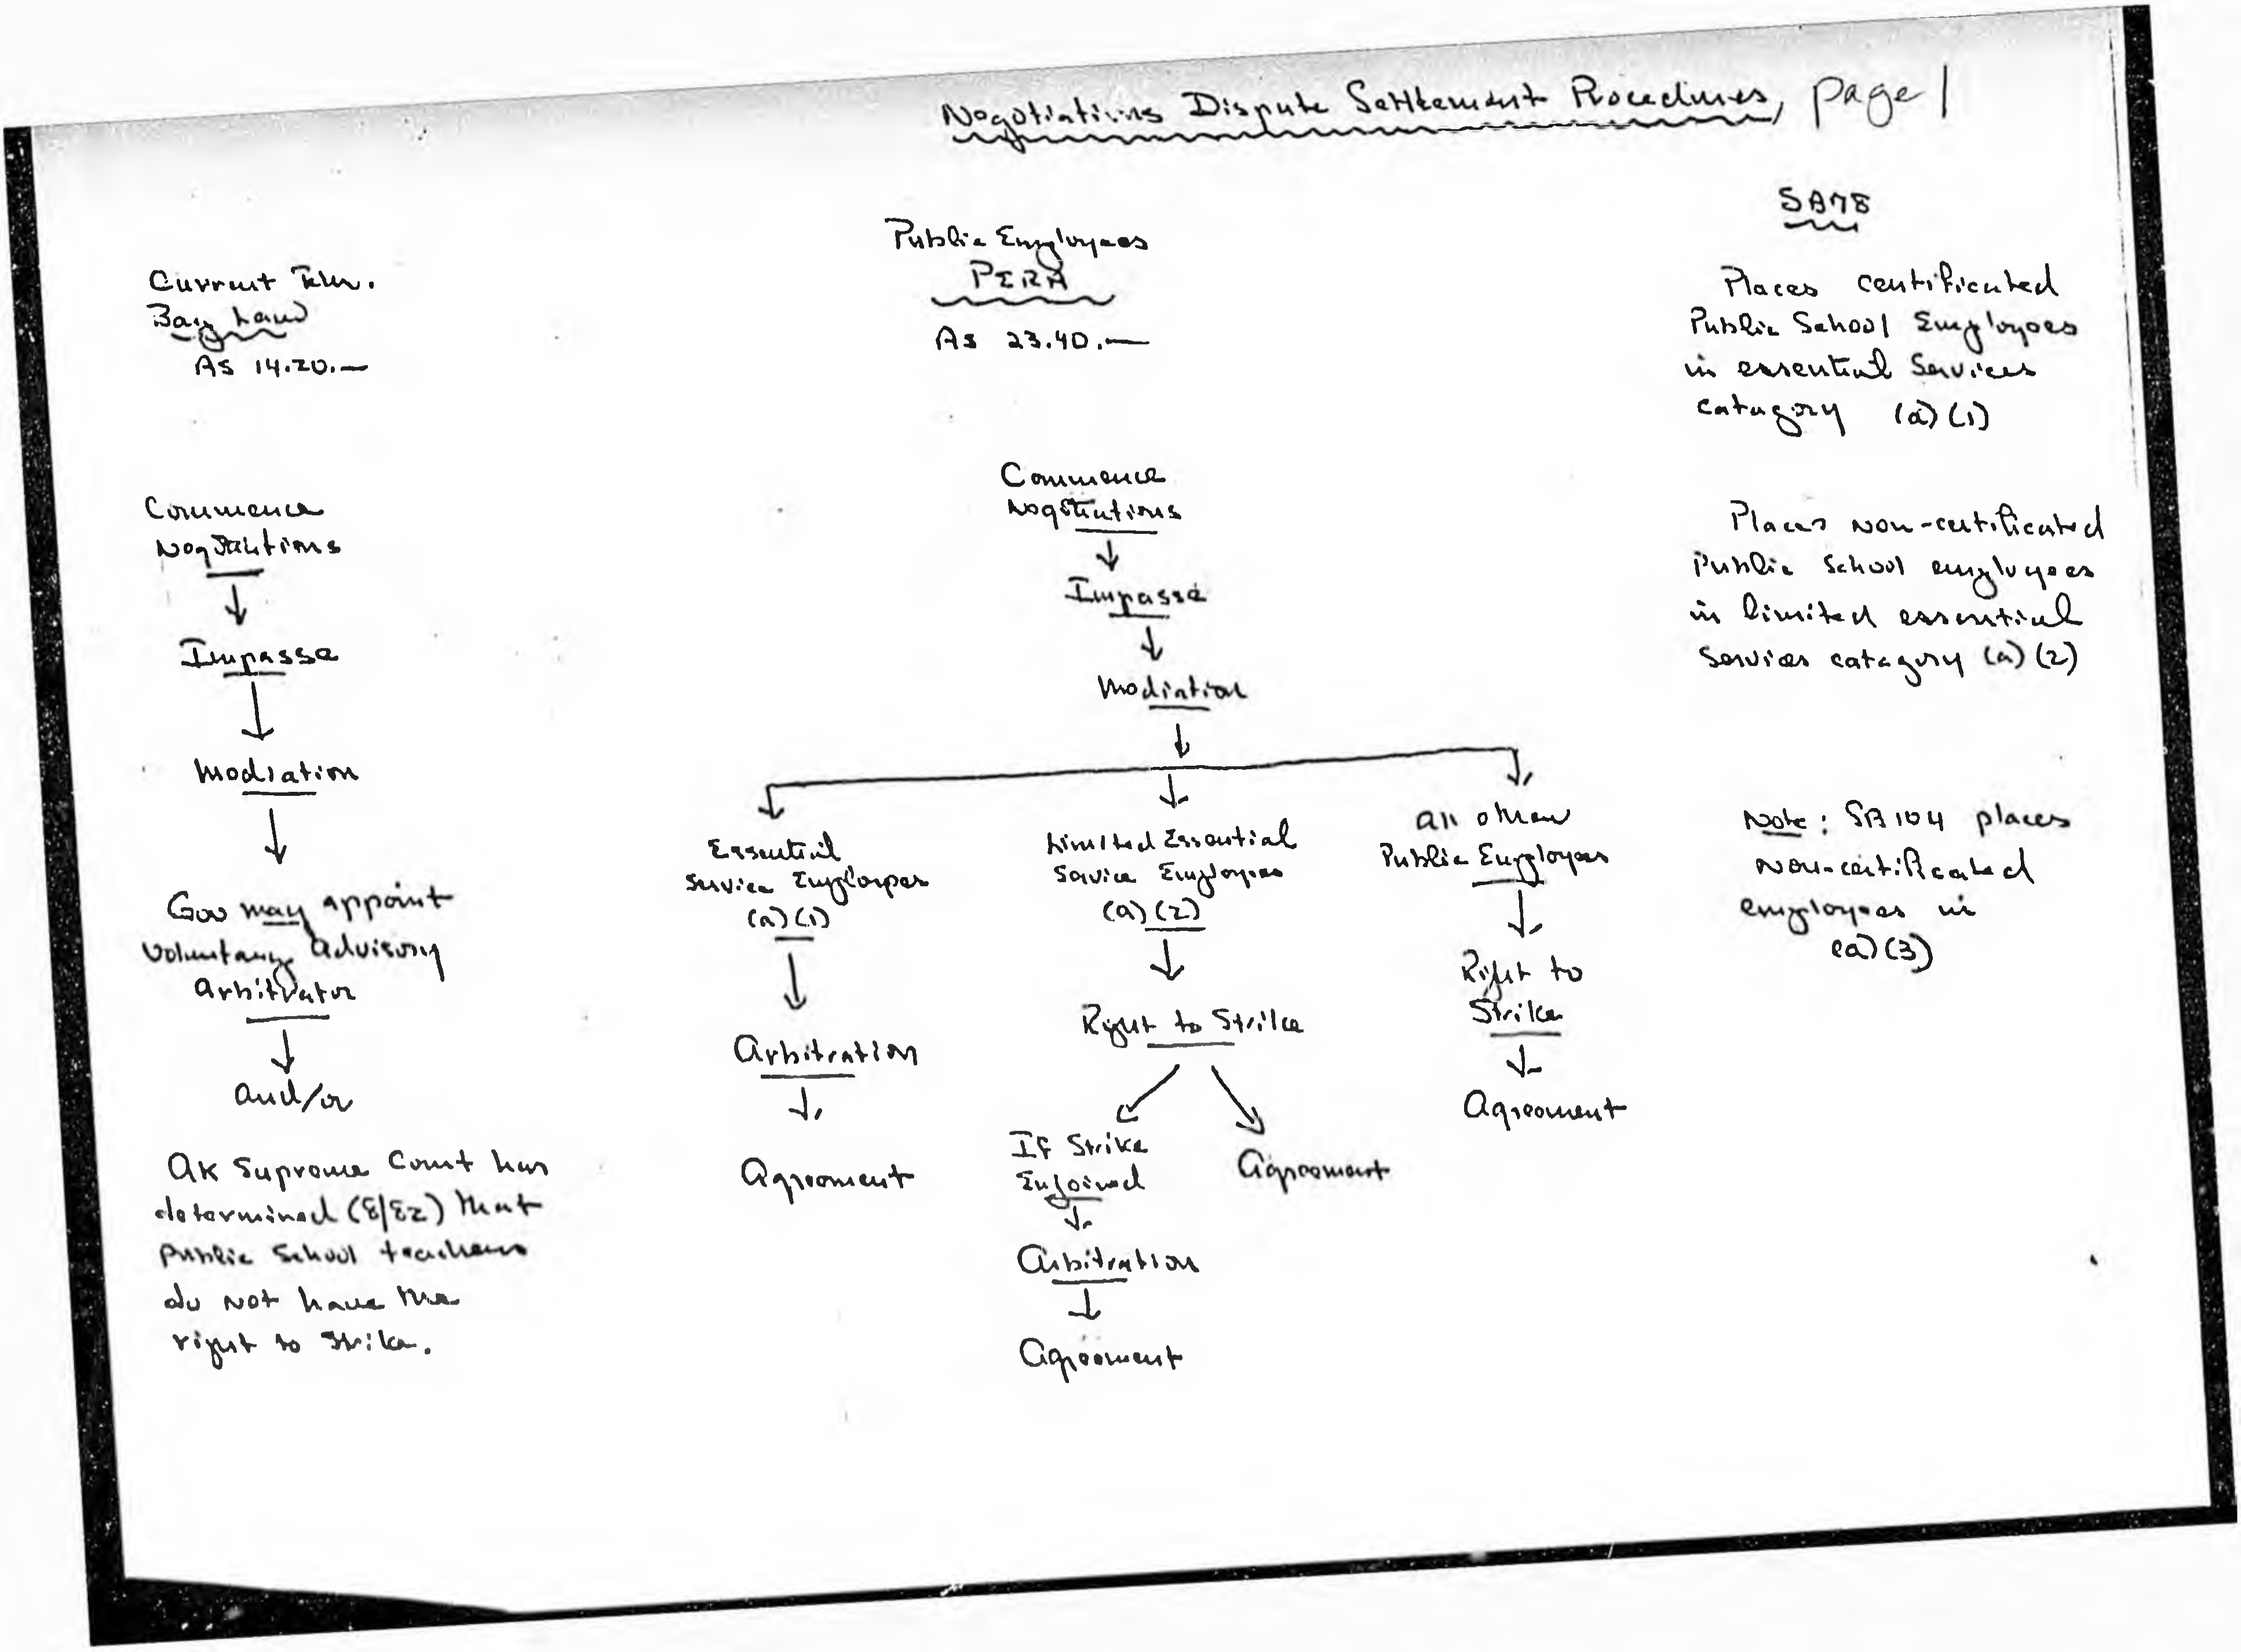 Negotiations Dispute Settlement Procedures, page 1
Current Tchr.
Barg Law
AS 14.20.—
Commence
Negotiations
Impasse
Mediation
Gov may appoint
Voluntary Advisory
Arbitrator
and/or
AK Supreme Court has
determined (8/82) that
public School teachers
do not have the
right to strike.
Public Employees
PERA
AS 23.40.—
Commence
Negotiations
Impasse
Mediation
Essential
Service Employees
(a)(1)
Arbitration
Agreement
Limited Essential
Service Employees
(a)(2)
Right to Strike
If Strike
Enjoined
Arbitration
Agreement
Agreement
All other
Public Employees
Right to
Strike
Agreement
SB78
Places certificated
Public School Employees
in essential Services
catagory (a)(1)
Places non-certificated
Public School employees
in limited essential
Services catagory (a)(2)
Note: SB104 places
non-certificated
employees in
(a)(3)